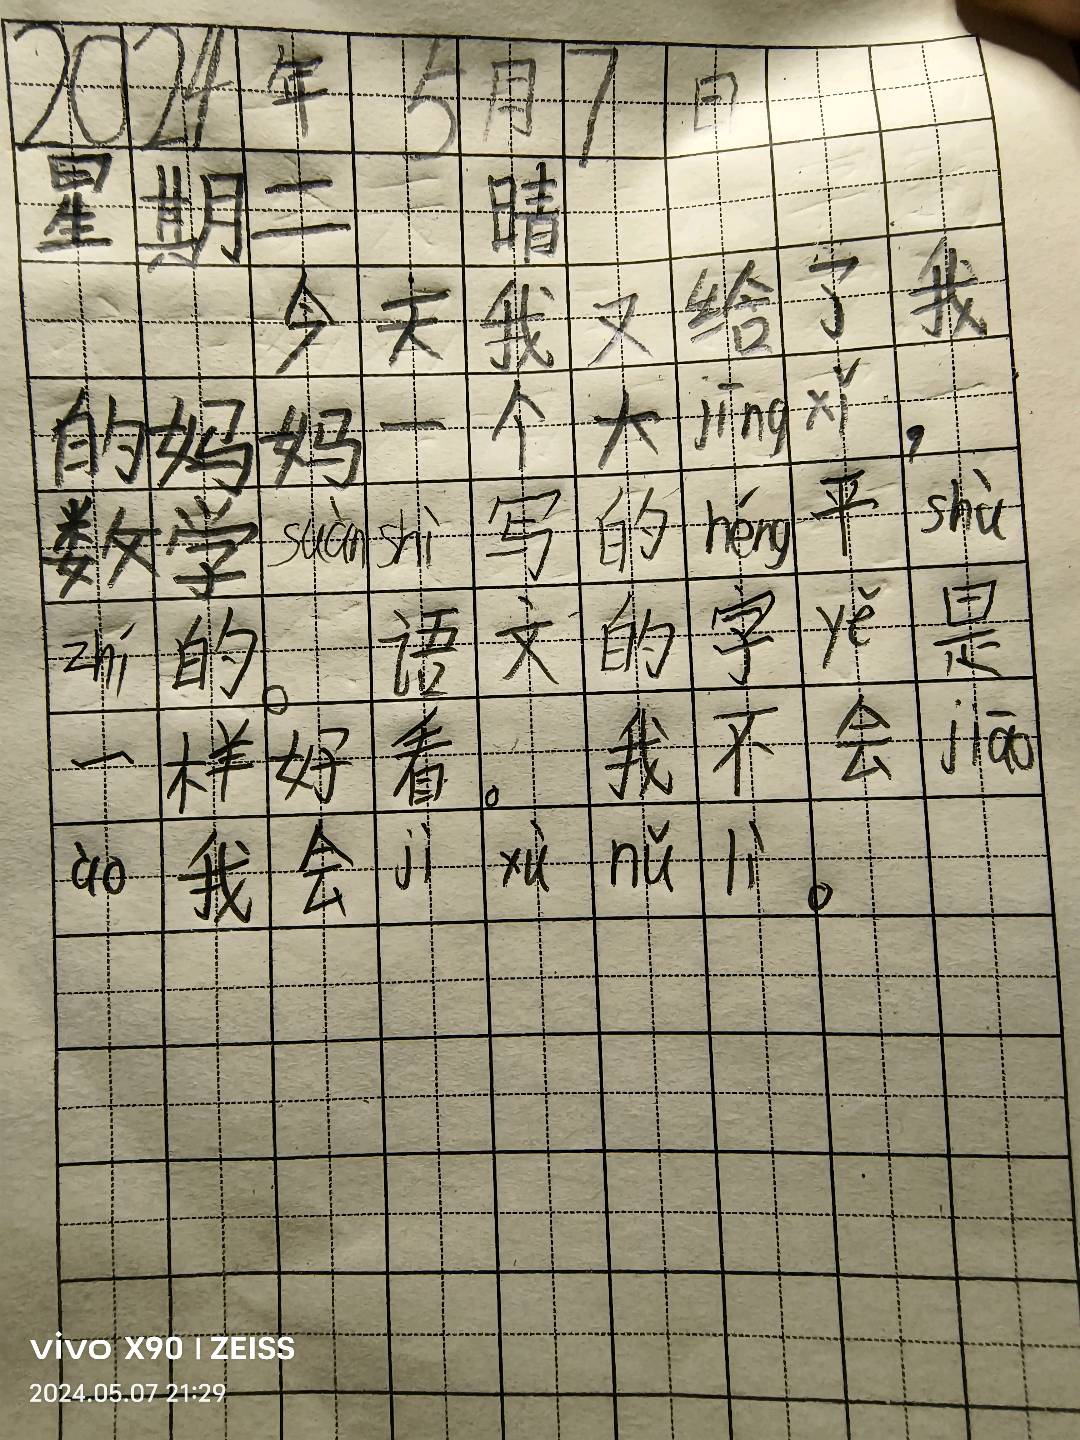 2024年 5月7日
星期二 晴
今天我又给了我
的妈妈一个大jīngxǐ，
数学suànshì写的héng平shù
zhí的。语文的字yě是
一样好看。我不会jiāo
ào我会jìxùnǔlì。
vivo X90 | ZEISS
2024.05.07 21:29